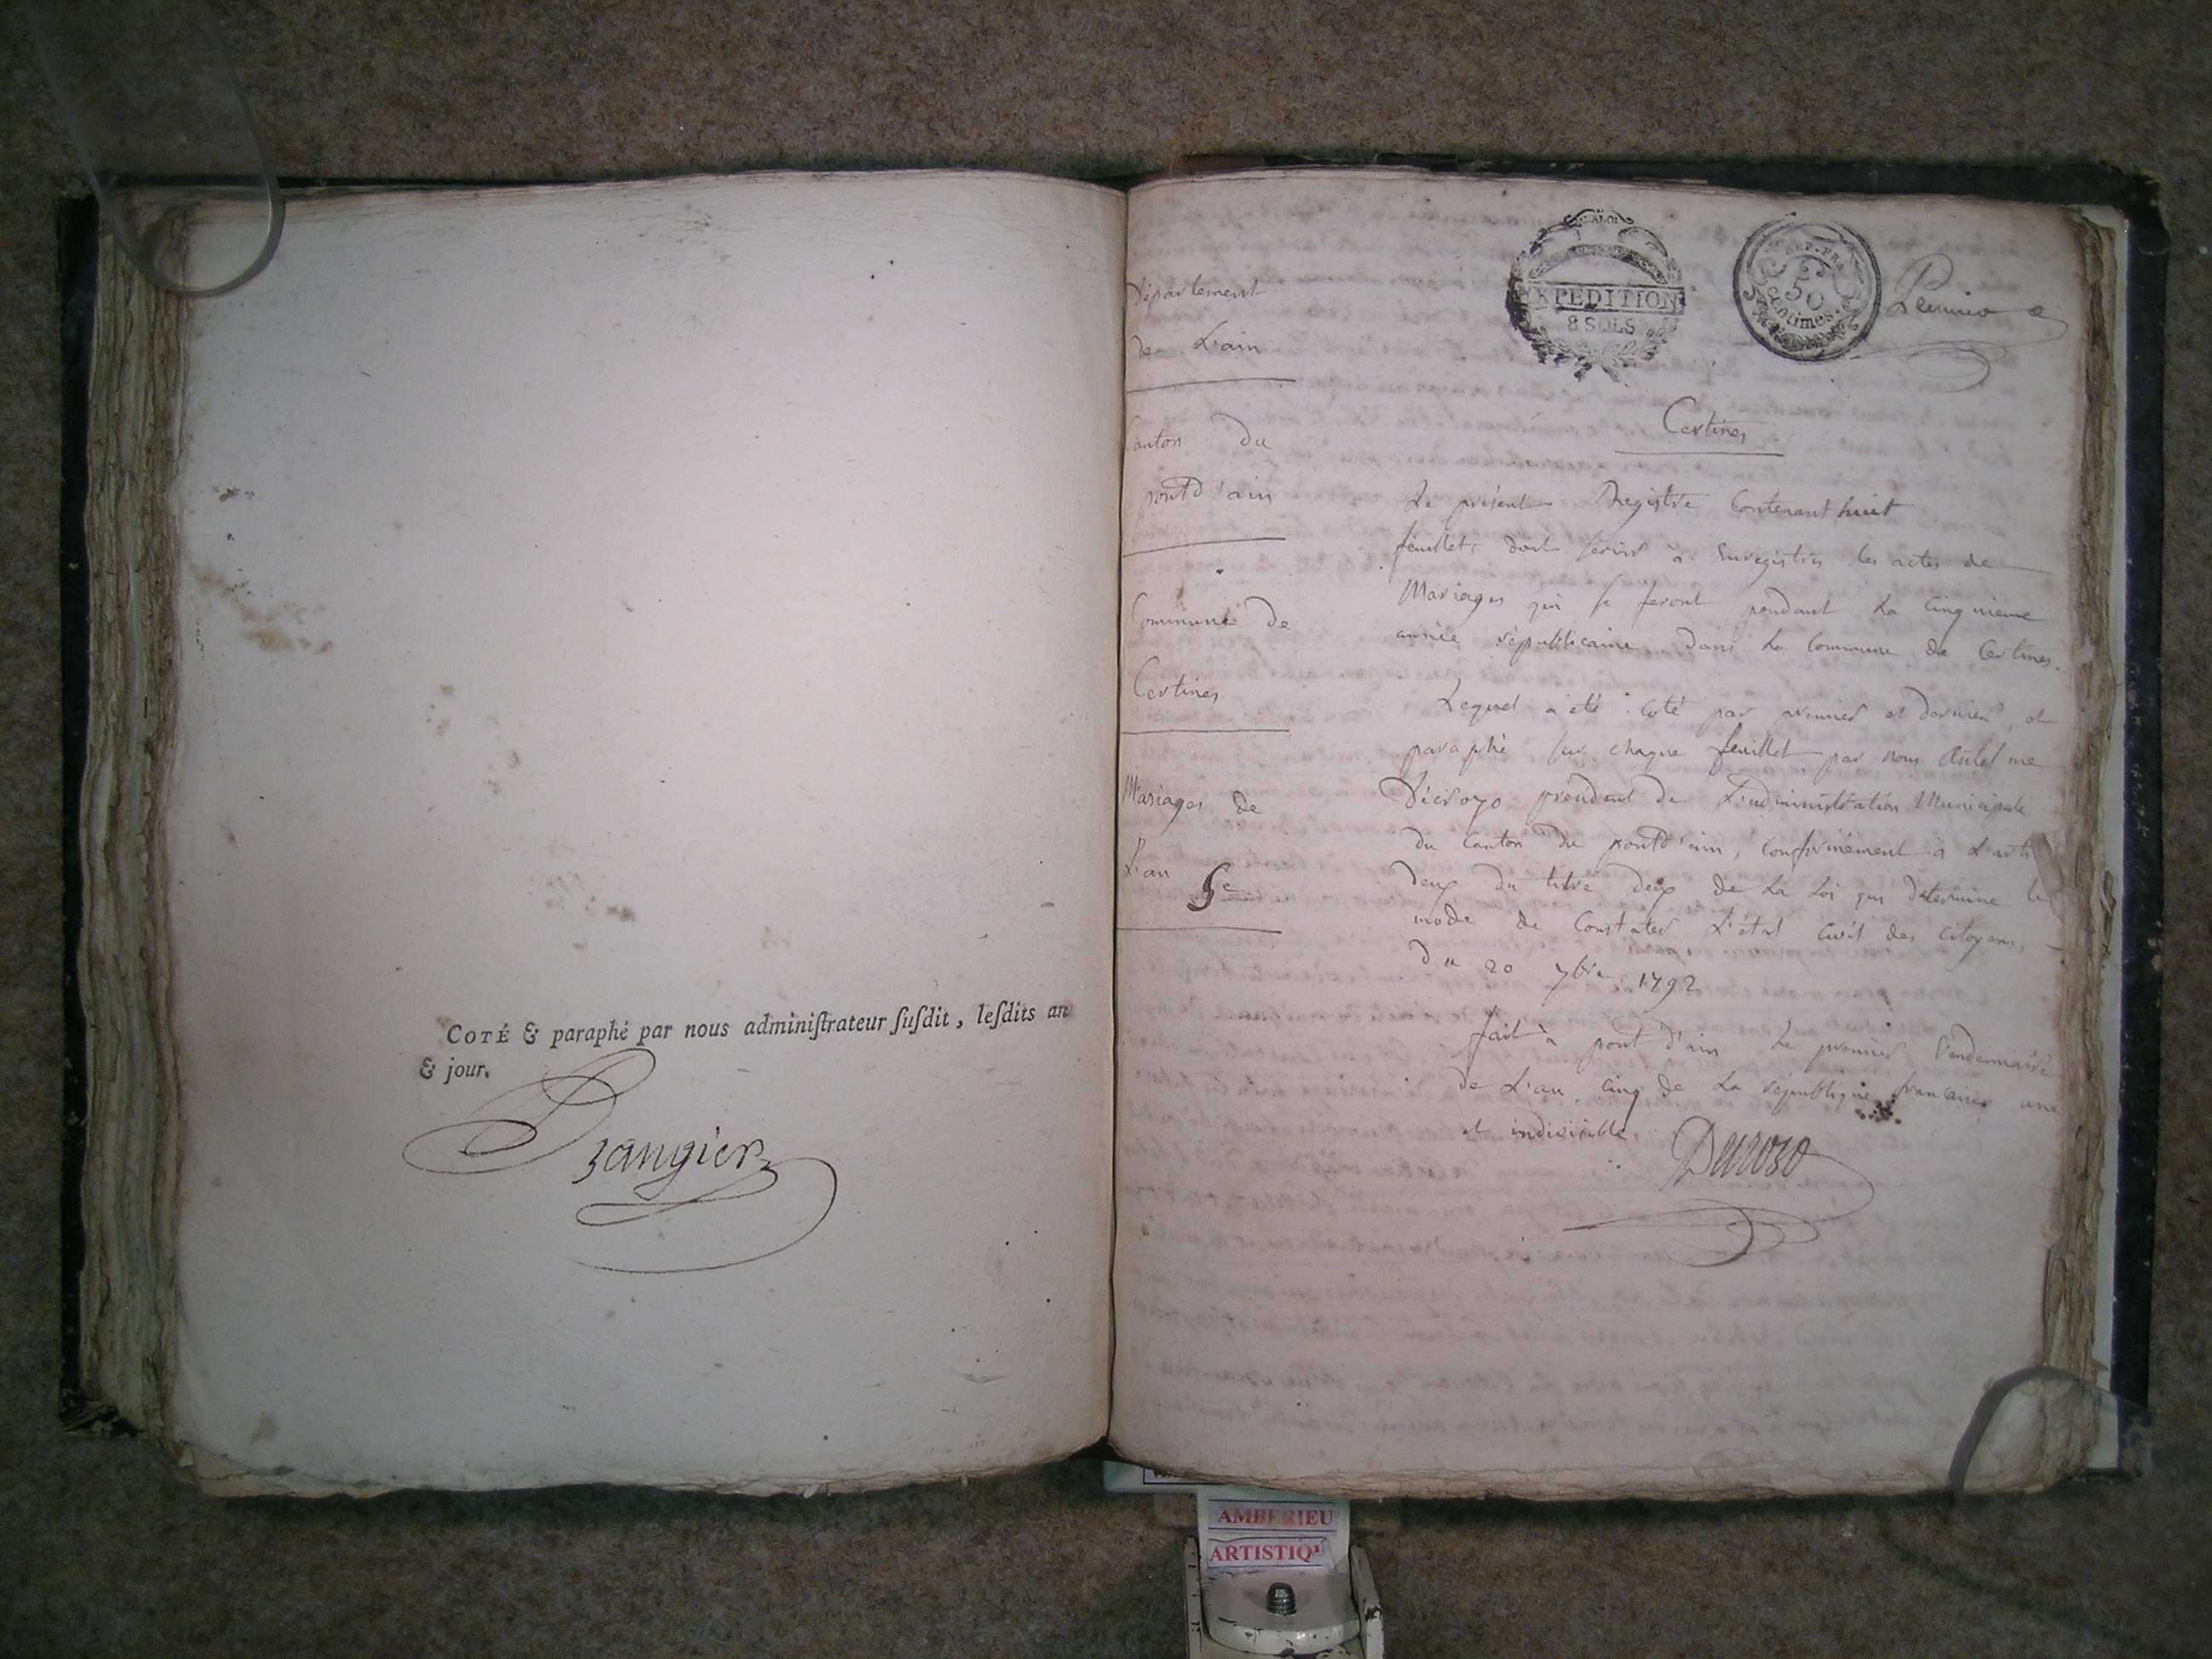 COTÉ & paraphé par nous adminiſtrateur ſuſdit, leſdits an
& jour.
LA LOI
EXPEDITION
8 SOLS
REP. FRA
50
centimes.
Premier
Certines
Département
de L'ain
Canton du
pont d'ain
Commune de
Certines
Mariages de
L'an 5e
Le présent Registre Contenant huit
feuillets doit servir à Enregistrer les actes de
Mariages qui se feront pendant La Cinquieme
année républicaine dans La Commune de Certines.
Lequel a été coté par premier et dernier, et
paraphé sur chaque feuillet par nous Antelme
président de L'administration Municipale
du Canton du pont d'ain, conformément à L'arti
deux du titre deux de La Loi qui determine le
mode de Constater L'état Civil des Citoyens,
du 20 7bre 1792
fait à pont d'ain Le premier Vendemiaire
de L'an cinq de La république francaise une
et indivisible.
Durozo
AMBERIEU
ARTISTIQ